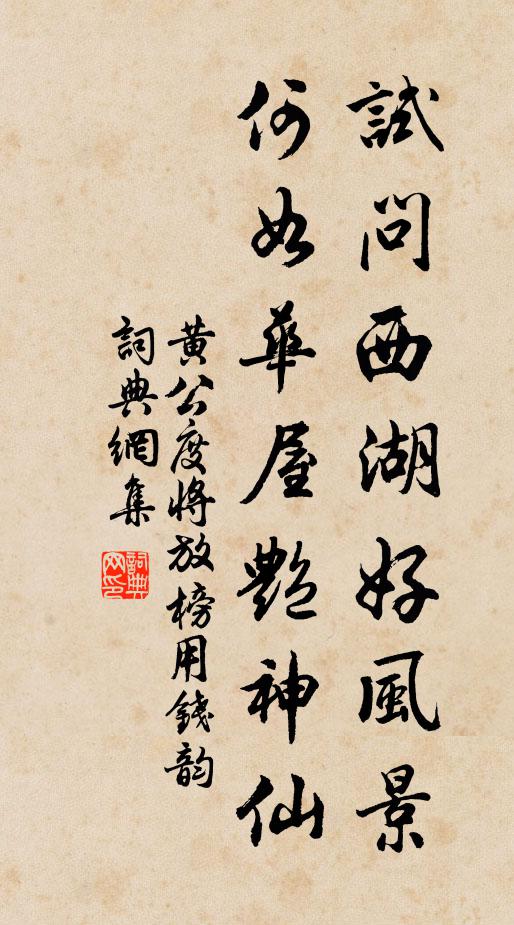 試問西湖好風景
何如華屋艷神仙
黄公度將放榜用錢韵
詞典網集
詞典網印